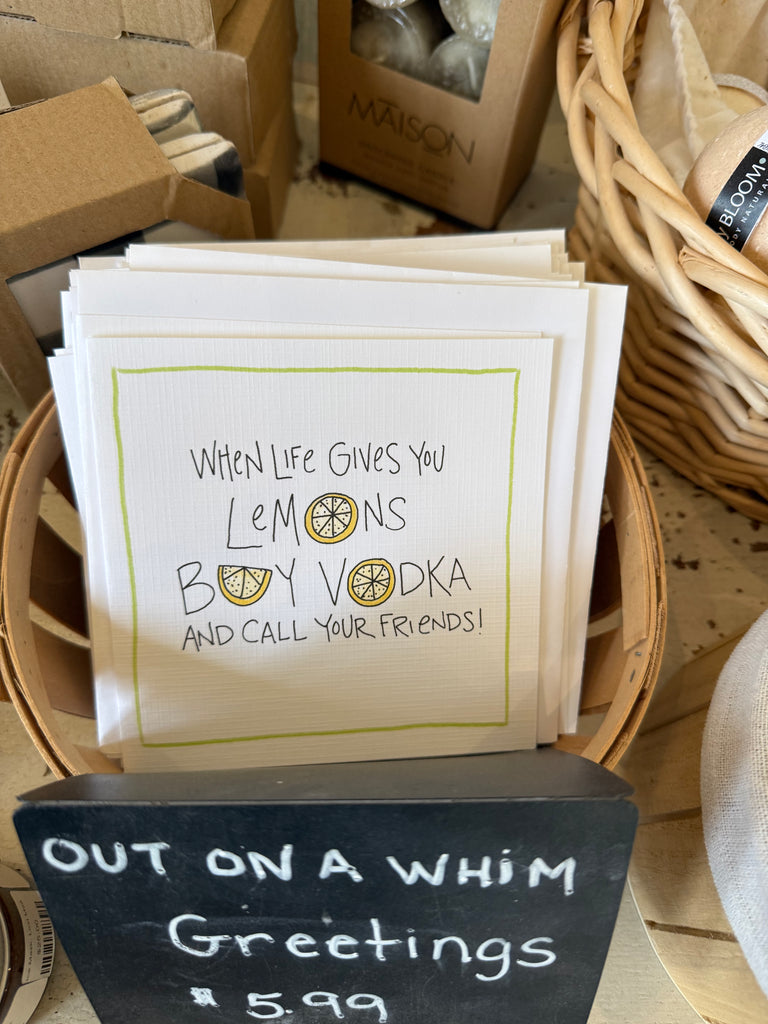 MAISON
BLOOM
BODY NATURAL
WHEN LIFE GIVES YOU
LEMONS
BUY VODKA
AND CALL YOUR FRIENDS!
OUT ON A WHIM
Greetings
$5.99